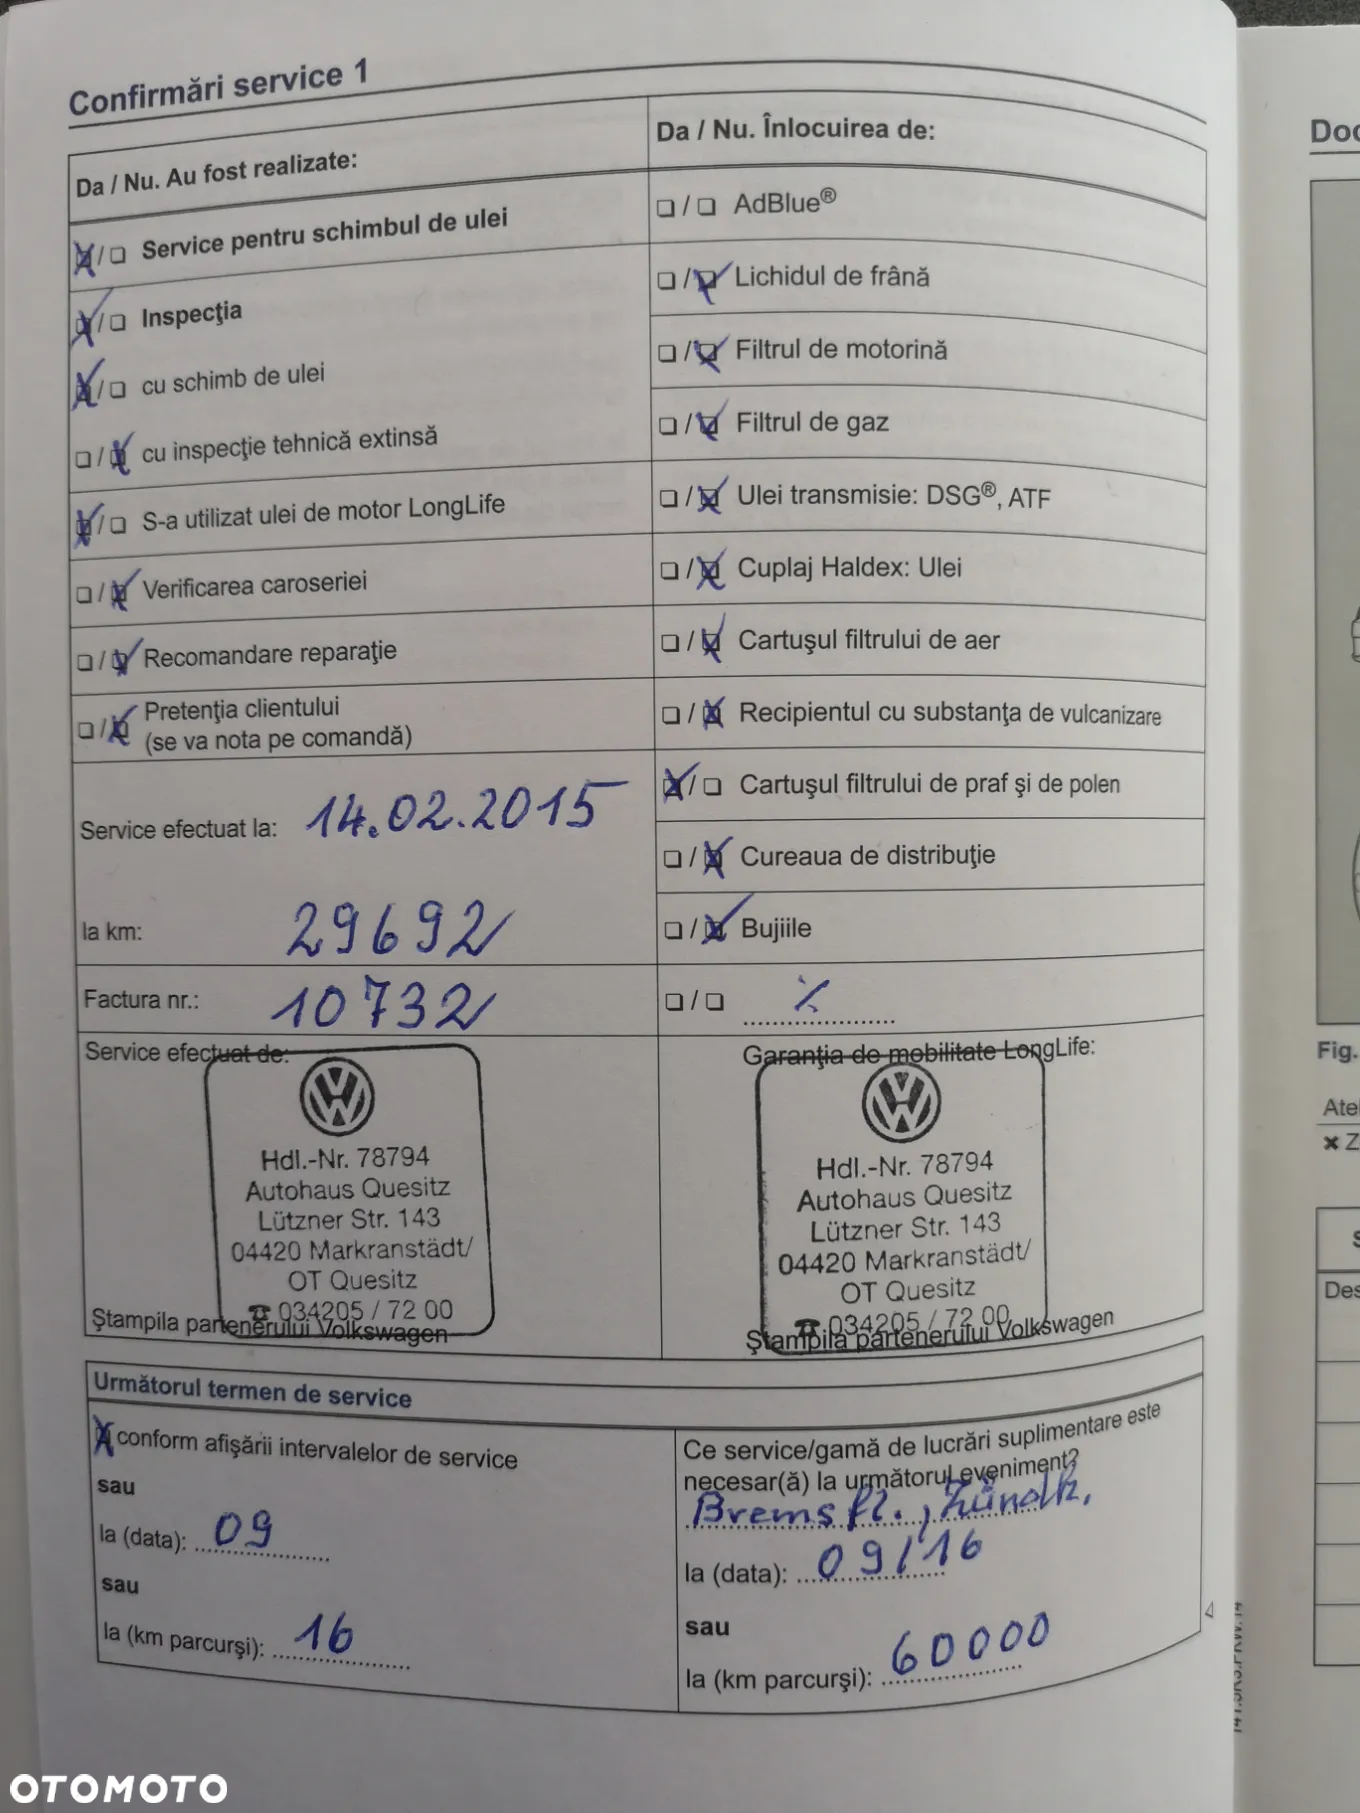 Confirmări service 1
Da / Nu. Au fost realizate:
Service pentru schimbul de ulei
Inspecţia
cu schimb de ulei
cu inspecţie tehnică extinsă
S-a utilizat ulei de motor LongLife
Verificarea caroseriei
Recomandare reparaţie
Pretenţia clientului
(se va nota pe comandă)
Service efectuat la: 14.02.2015
la km: 29692
Factura nr.: 10732
Service efectuat de:
Hdl.-Nr. 78794
Autohaus Quesitz
Lützner Str. 143
04420 Markranstädt/
OT Quesitz
☎ 034205 / 72 00
Ştampila partenerului Volkswagen
Da / Nu. Înlocuirea de:
AdBlue®
Lichidul de frână
Filtrul de motorină
Filtrul de gaz
Ulei transmisie: DSG®, ATF
Cuplaj Haldex: Ulei
Cartuşul filtrului de aer
Recipientul cu substanţa de vulcanizare
Cartuşul filtrului de praf şi de polen
Cureaua de distribuţie
Bujiile
Garanţia de mobilitate LongLife:
Hdl.-Nr. 78794
Autohaus Quesitz
Lützner Str. 143
04420 Markranstädt/
OT Quesitz
☎ 034205 / 72 00
Ştampila partenerului Volkswagen
Următorul termen de service
conform afişării intervalelor de service
sau
la (data): 09
sau
la (km parcurşi): 16
Ce service/gamă de lucrări suplimentare este
necesar(ă) la următorul eveniment?
Bremsfl., Zündk.
la (data): 09/16
sau
la (km parcurşi): 60000
Fig.
OTOMOTO